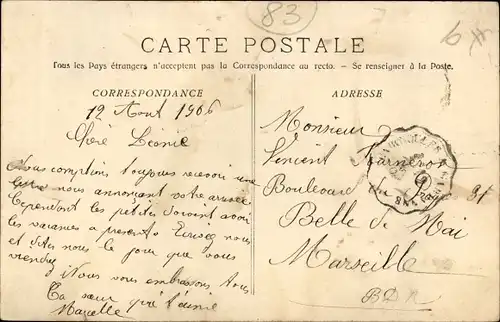 83
CARTE POSTALE
Tous les Pays étrangers n'acceptent pas la Correspondance au recto. - Se renseigner à la Poste.
CORRESPONDANCE
12 Aout 1906
Chère Léonie
Nous comptions toujours recevoir une
nous annonçant votre arrivée
Cependant les petits doivent avoir
les vacances a present. Ecrivez nous
et dites nous le jour que vous
viendrez
Nous vous embrassons tous
Ta sœur qui t'aime
ADRESSE
Monsieur
Vincent
Boulevard du 31
Belle de Mai
Marseille
BDR